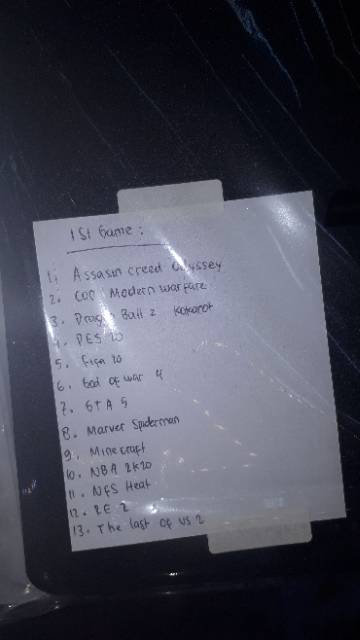 ISI Game :
1. Assasin creed Odyssey
2. COD Modern warfare
3. Dragon Ball Z Kakarot
4. PES 20
5. Fifa 20
6. God of war 4
7. GTA 5
8. Marvel Spiderman
9. Minecraft
10. NBA 2K20
11. NFS Heat
12. RE 2
13. The last of us 2